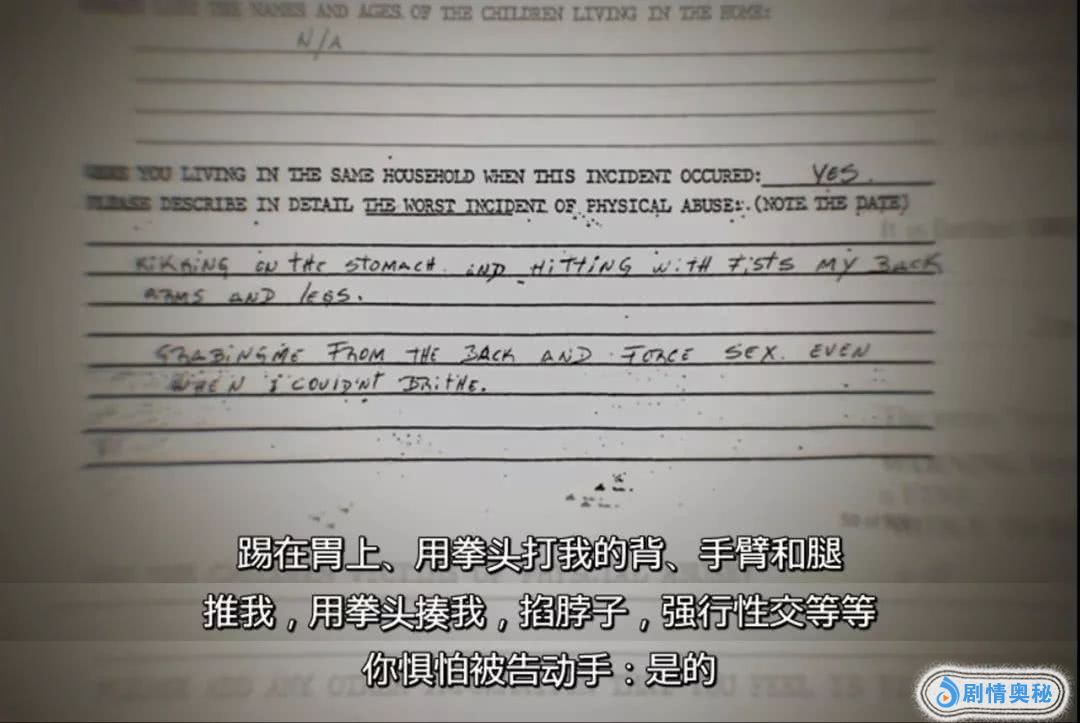 THE NAMES AND AGES OF THE CHILDREN LIVING IN THE HOME:
N/A
YOU LIVING IN THE SAME HOUSEHOLD WHEN THIS INCIDENT OCCURED: YES.
PLEASE DESCRIBE IN DETAIL THE WORST INCIDENT OF PHYSICAL ABUSE: (NOTE THE DATE)
KIKKING ON THE STOMACH AND HITTING WITH FISTS MY BACK
ARMS AND LEGS.
GRABINGME FROM THE BACK AND FORCE SEX. EVEN
WHEN I COULD'NT BRITHE.
踢在胃上、用拳头打我的背、手臂和腿
推我，用拳头揍我，掐脖子，强行性交等等
你惧怕被告动手：是的
剧情奥秘